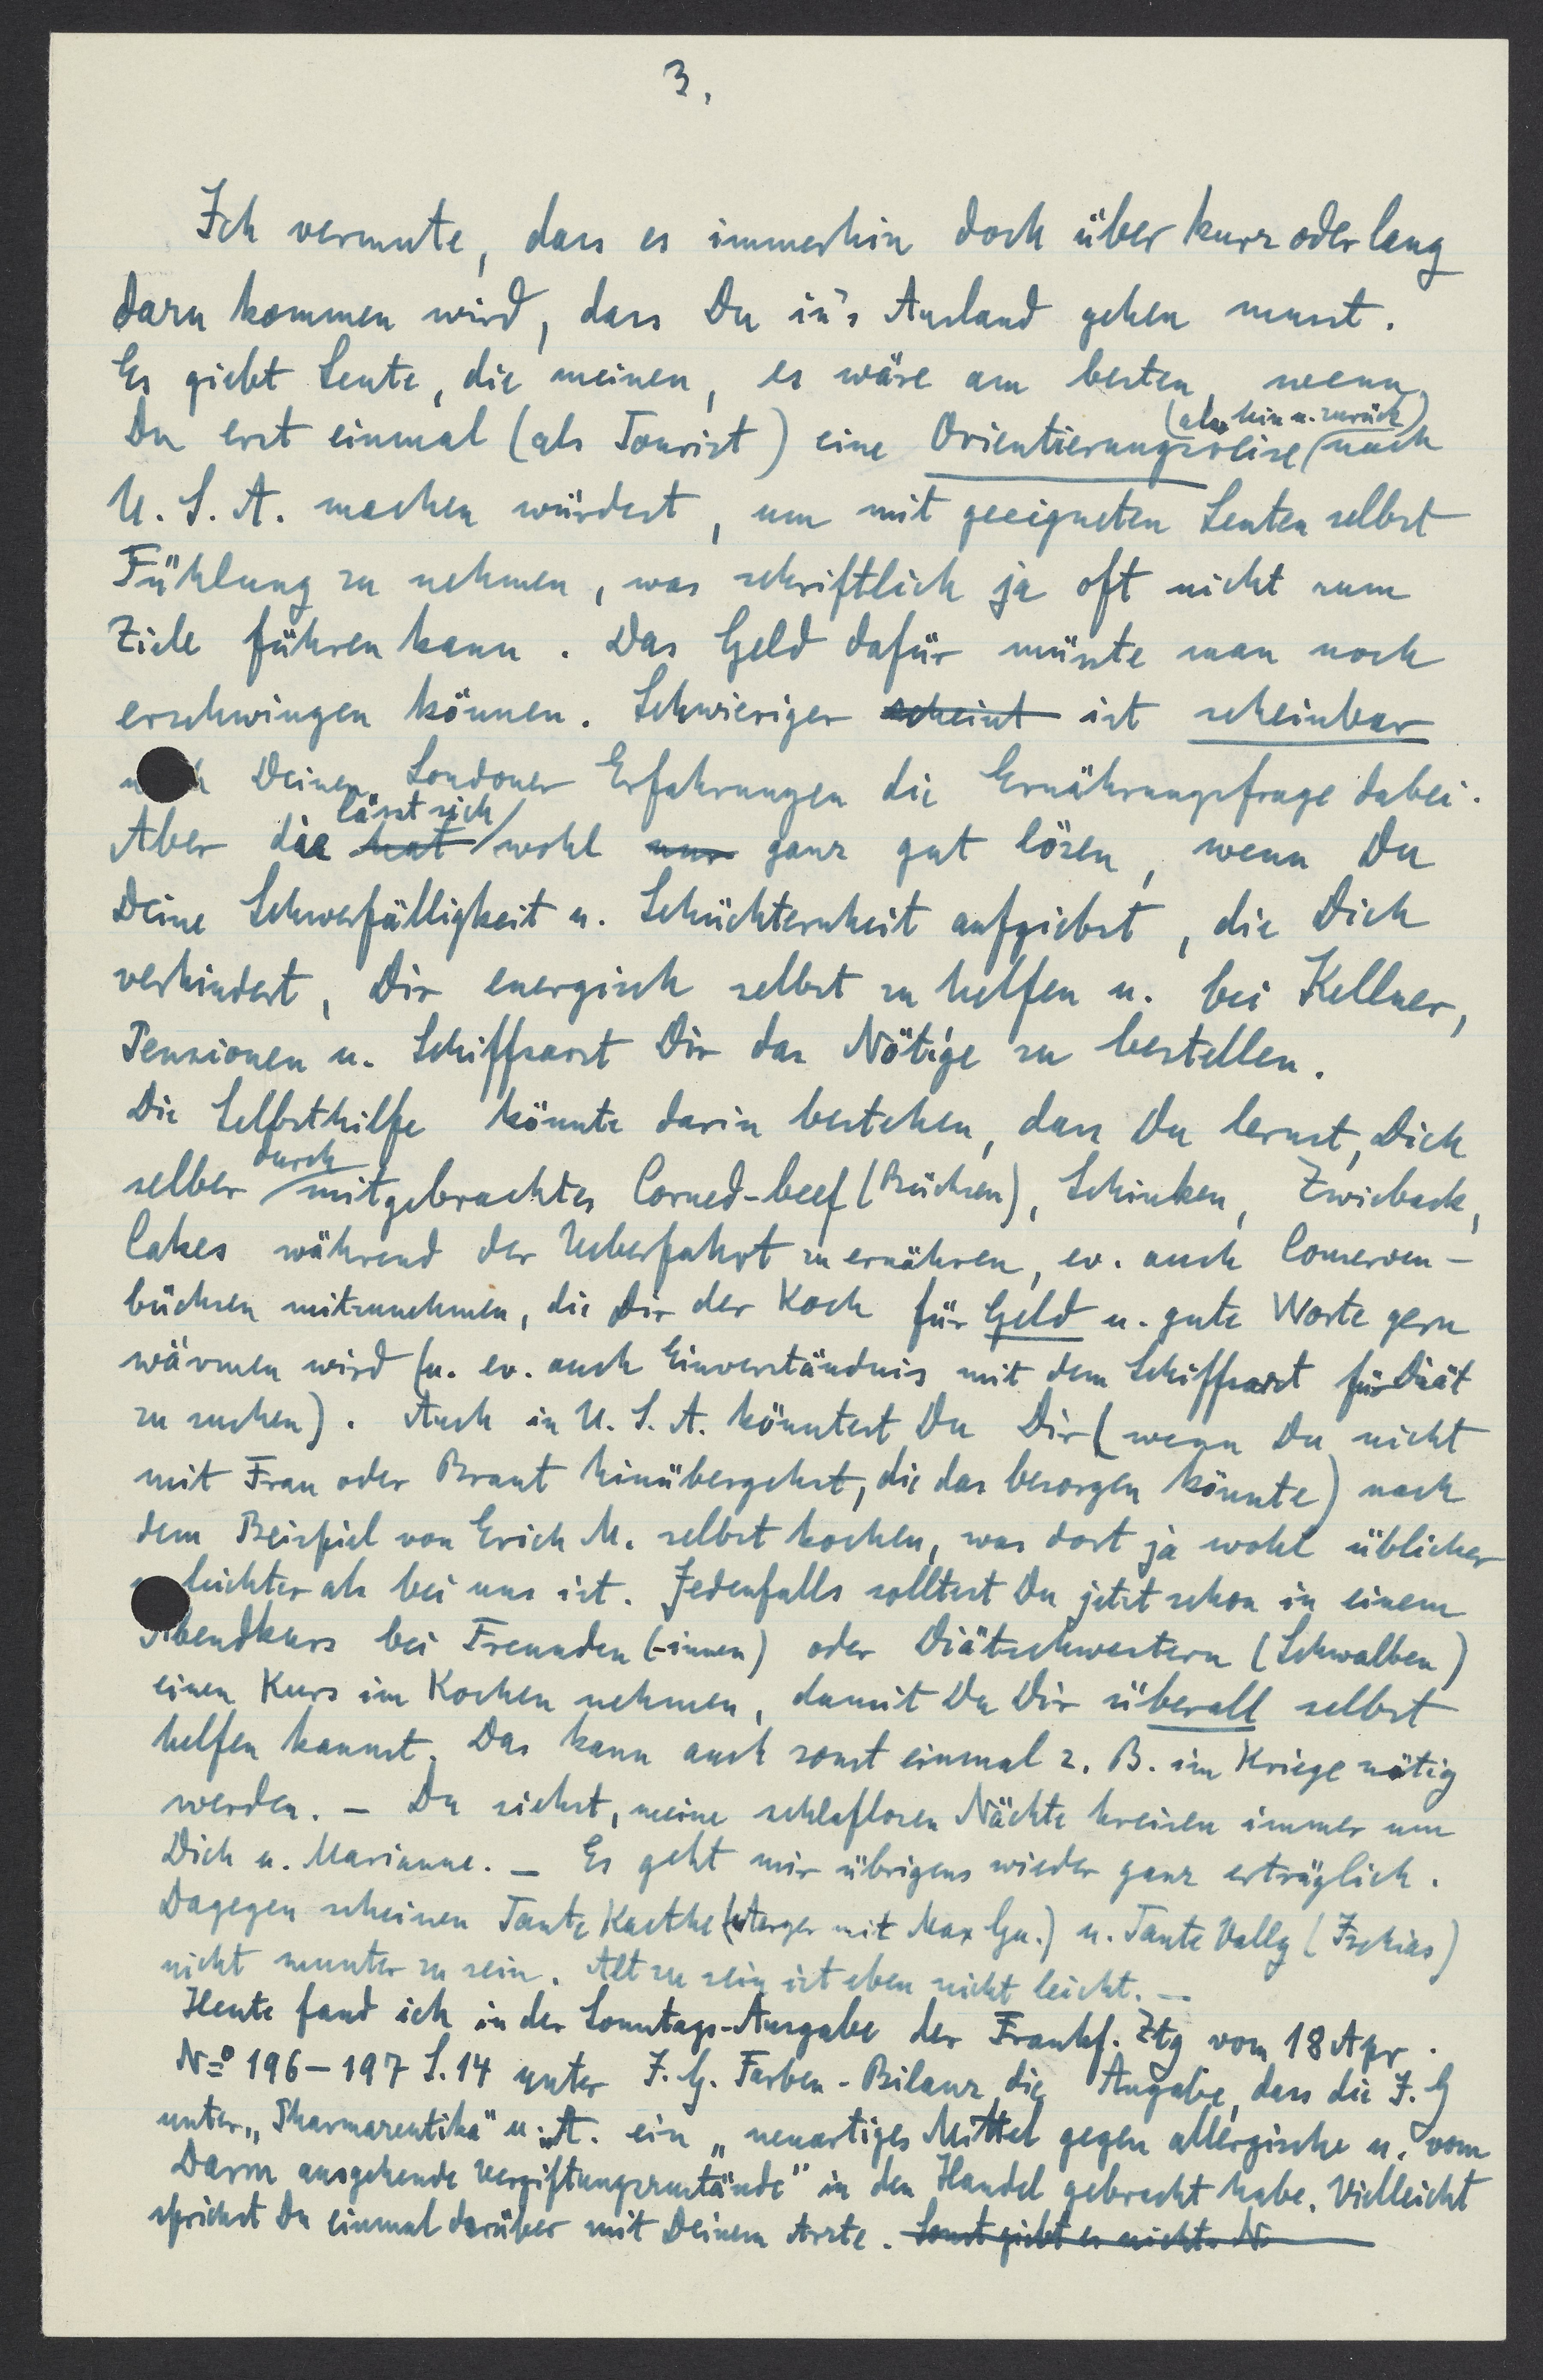 3.
Ich vermute, dass es immerhin doch über kurz oder lang
dazu kommen wird, dass Du in's Ausland gehen musst.
Es giebt Leute, die meinen, es wäre am besten, wenn
(also hin u. zurück)
Du erst einmal (als Tourist) eine Orientierungsreise nach
U. S. A. machen würdest, um mit geeigneten Leuten selbst
Fühlung zu nehmen, was schriftlich ja oft nicht zum
Ziele führen kann. Das Geld dafür müsste man noch
erschwingen können. Schwieriger scheint ist scheinbar
nach Deinen Londoner Erfahrungen die Ernährungsfrage dabei.
lässt sich
Aber die hat wohl nur ganz gut lösen, wenn Du
Deine Schwerfälligkeit u. Schüchternheit aufgiebst, die Dich
verhindert, Dir energisch selbst zu helfen u. bei Kellner,
Pensionen u. Schiffsarzt Dir das Nötige zu bestellen.
Die Selbsthilfe könnte darin bestehen, dass Du lernst, Dich
durch
selber mitgebrachtes Corned-beef (Büchsen), Schinken, Zwieback,
Cakes während der Ueberfahrt zu ernähren, ev. auch Conserven-
büchsen mitzunehmen, die Dir der Koch für Geld u. gute Worte gern
wärmen wird (u. ev. auch Einverständnis mit dem Schiffsarzt für Diät
zu suchen). Auch in U. S. A. könntest Du Dir (wenn Du nicht
mit Frau oder Braut hinübergehst, die das besorgen könnte) nach
dem Beispiel von Erich M. selbst kochen, was dort ja wohl üblicher
leichter als bei uns ist. Jedenfalls solltest Du jetzt schon in einem
Abendkurs bei Freunden (-innen) oder Diätschwestern (Schwalben)
einen Kurs im Kochen nehmen, damit Du Dir überall selbst
helfen kannst. Das kann auch sonst einmal z. B. im Kriege nötig
werden. – Du siehst, meine schlaflosen Nächte kreisen immer um
Dich u. Marianne. – Es geht mir übrigens wieder ganz erträglich.
Dagegen scheinen Tante Kaethe (Aerger mit Max Gu.) u. Tante Vally (Ischias)
nicht munter zu sein. Alt zu sein ist eben nicht leicht. –
Heute fand ich in der Sonntags-Ausgabe der Frankf. Ztg vom 18 Apr.
Nº 196–197 S. 14 unter J. G. Farben-Bilanz die Angabe, dass die J. G
unter „Pharmazeutika" u. A. ein „neuartiges Mittel gegen allergische u. vom
Darm ausgehende Vergiftungszustände" in den Handel gebracht habe. Vielleicht
sprichst Du einmal darüber mit Deinem Arzte. Sonst giebt es nichts N